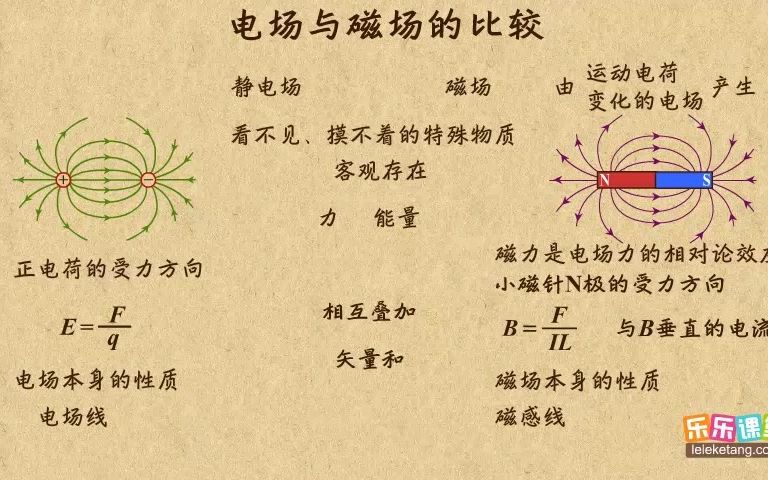 电场与磁场的比较
静电场 磁场 由 运动电荷 产生
变化的电场
看不见、摸不着的特殊物质
客观存在
力 能量
+ − N S
正电荷的受力方向
磁力是电场力的相对论效
小磁针N极的受力方向
相互叠加
E = F/q
B = F/IL 与B垂直的电流
矢量和
电场本身的性质 磁场本身的性质
电场线 磁感线
乐乐课
leleketang.com